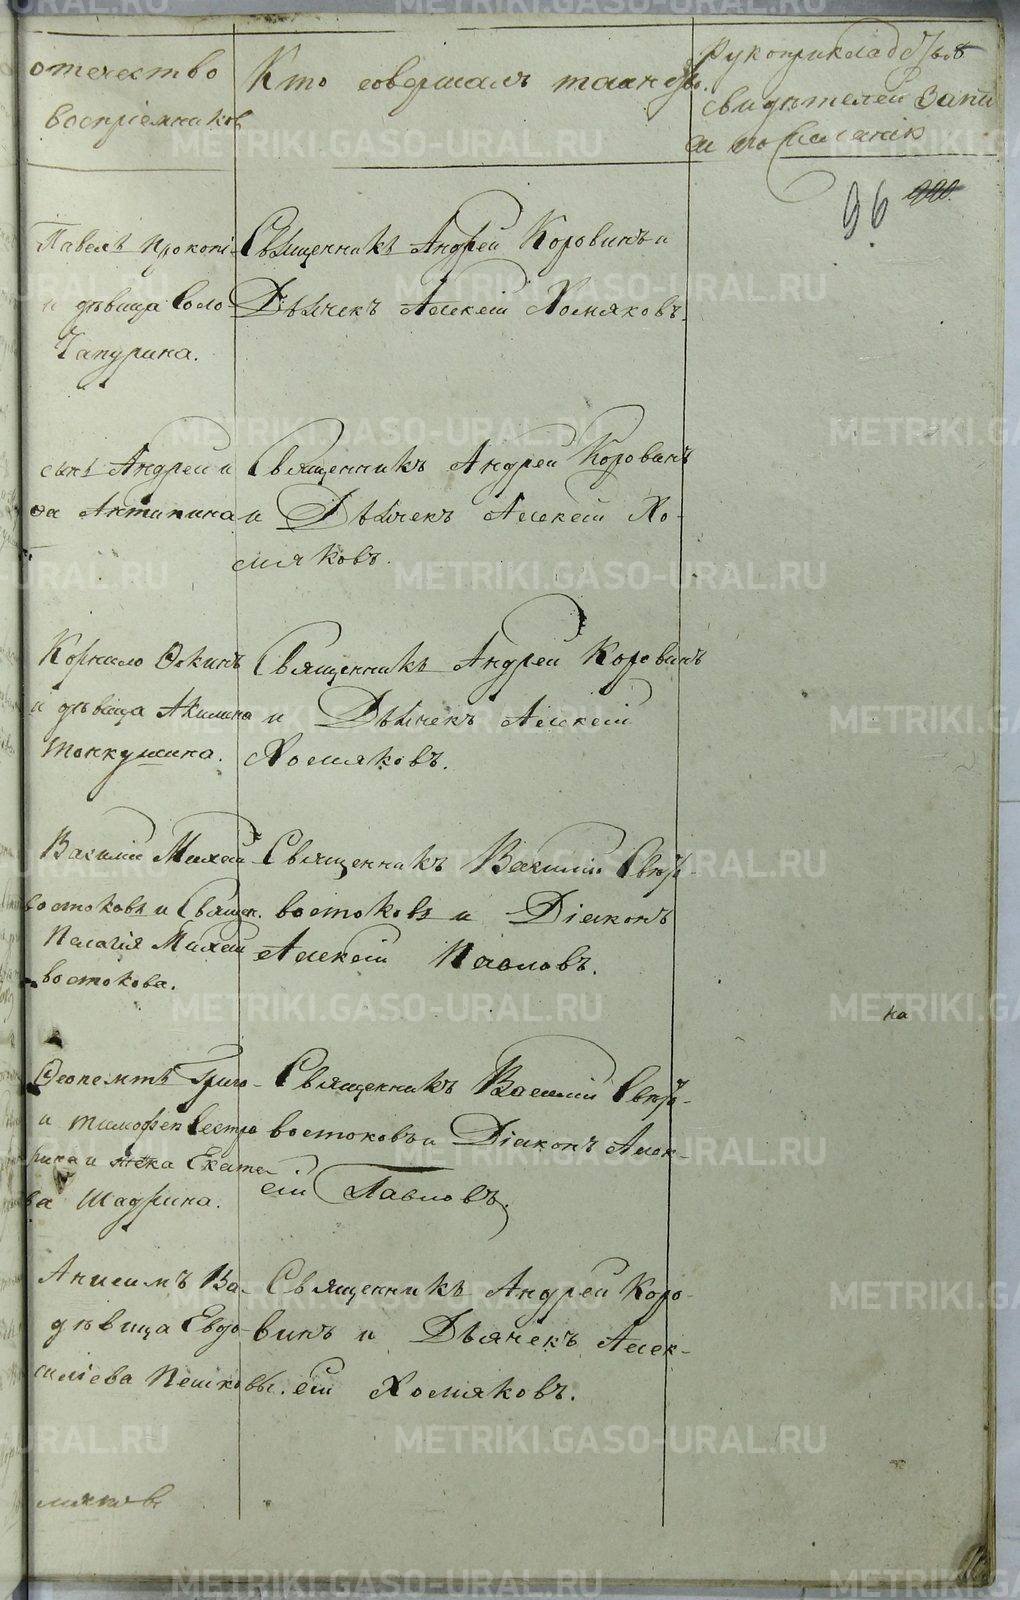 отечество
воспріемников
Кто совершалъ таинство.
Рукоприкладство
свидѣтелей Запи
си по желанію
96
Павелъ Прокопі-
и дѣвица Соло-
Чапурина.
Священникъ Андрей Коровинъ и
Дьячекъ Алексѣй Хомяковъ.
сынъ Андрей и
ва Антипина
Священникъ Андрей Коровинъ
и Дьячекъ Алексѣй Хо-
мяковъ.
Корнило
и дѣвица Акилина
Тонкушина.
Священникъ Андрей Коровинъ
и Дьячекъ Алексѣй
Хомяковъ.
Василій Михей
востоковъ и Священ.
Пелагія Михей
востокова.
Священникъ Василій
востоковъ и Діаконъ
Алексѣй Павловъ.
Феопемтъ Григо-
и Тимофей Сестра
рина и Екате
ва Шадрина.
Священникъ Василій
востоковъ и Діаконъ Алек-
сѣй Павловъ.
Анисимъ Ва-
дѣвица Евдо-
силіева Пешковы.
Священникъ Андрей Коро-
винъ и Дьячекъ Алек-
сѣй Хомяковъ.
на
METRIKI.GASO-URAL.RU